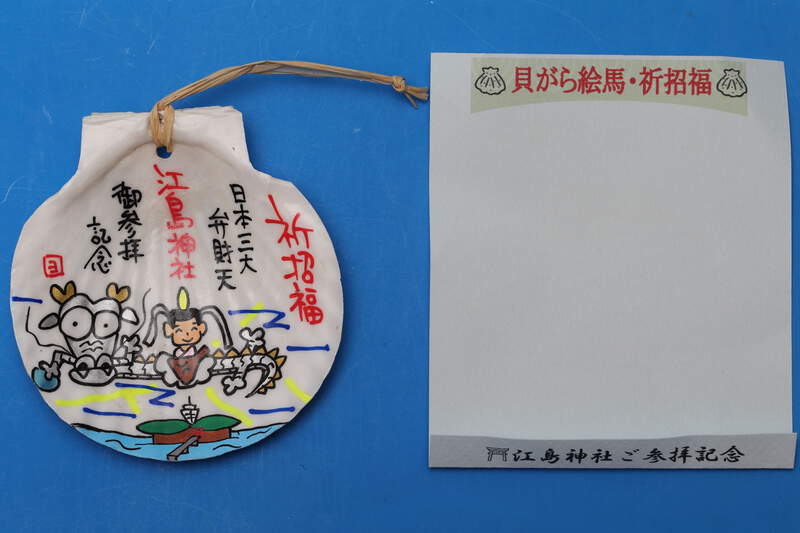 祈招福
日本三大
弁財天
江島神社
御参拝
記念
貝がら絵馬・祈招福
江島神社ご参拝記念